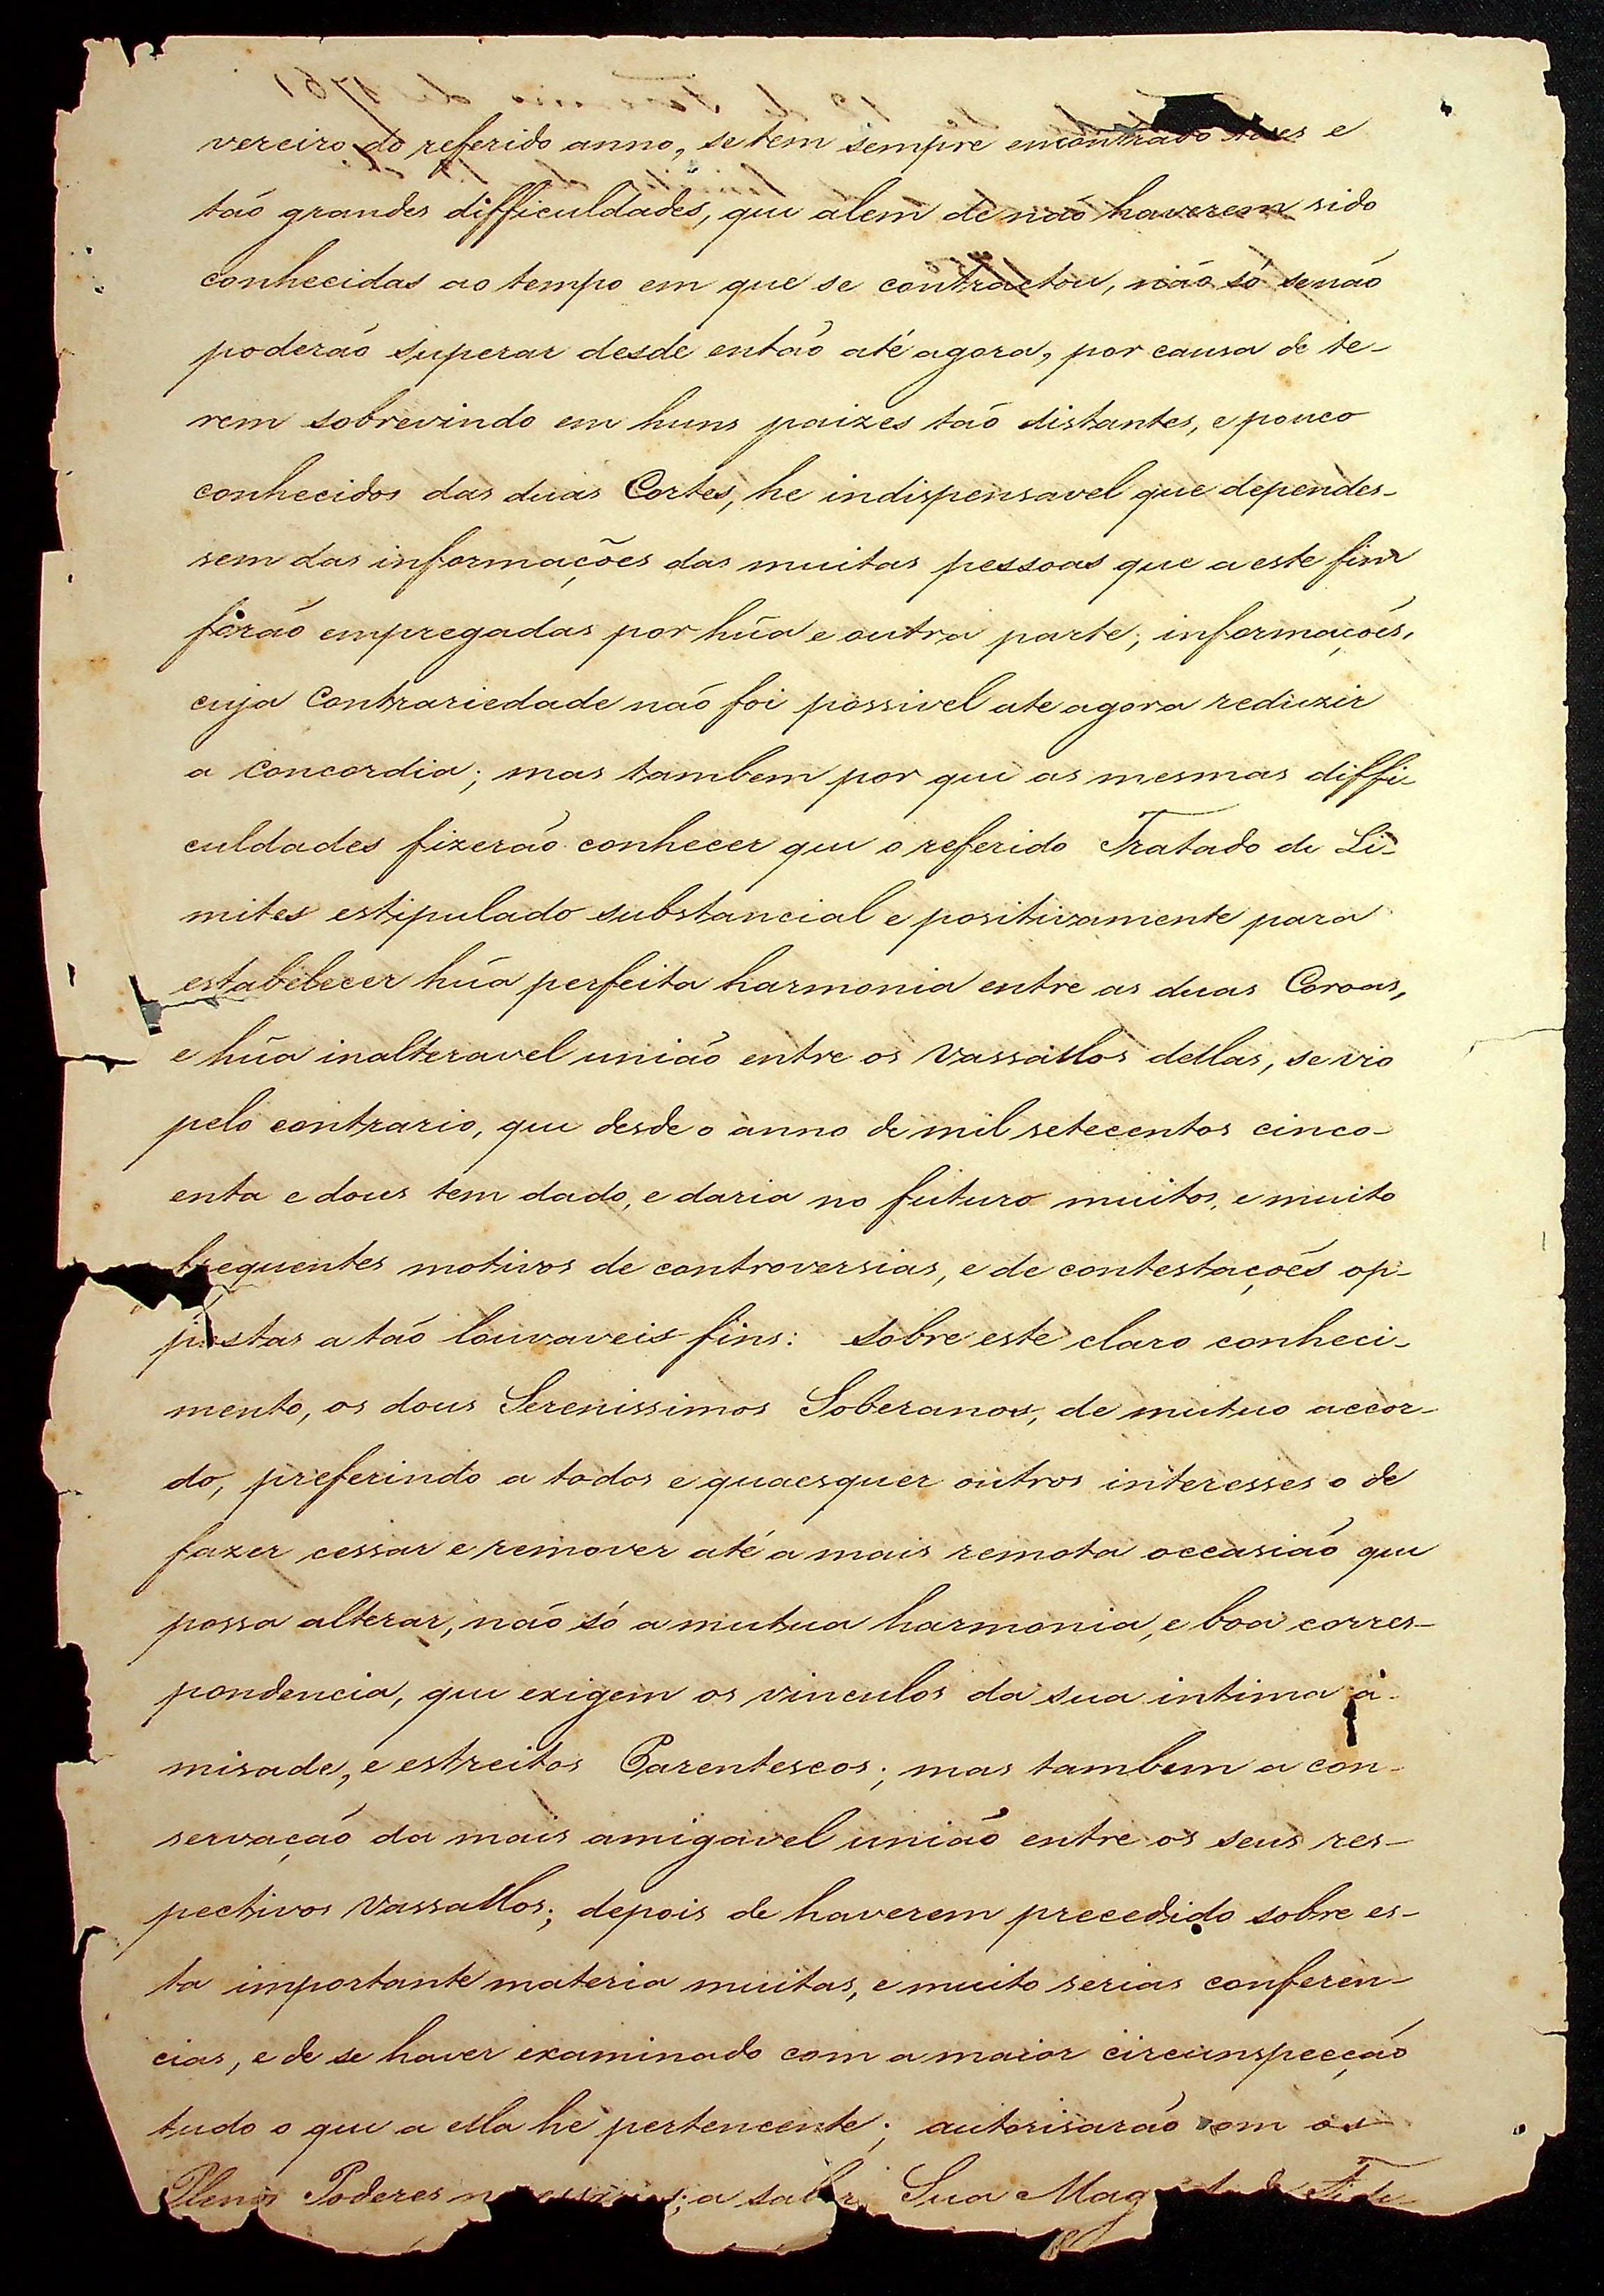 vereiro do referido anno, se tem sempre encontrado taes e
taõ grandes difficuldades, que alem de naõ haverem sido
conhecidas ao tempo em que se contractou, não só se naõ
poderaõ superar desde entaõ até agora, por causa de te-
rem sobrevindo em huns paizes taõ distantes, e pouco
conhecidos das duas Cortes, he indispensavel que dependes-
sem das informações das muitas pessoas que a este fim
foraõ empregadas por hũa e outra parte; informações,
cuja Contrariedade naõ foi possivel ate agora reduzir
a Concordia; mas tambem por que as mesmas diffi-
culdades fizeraõ conhecer que o referido Tratado de Li-
mites estipulado substancial e positivamente para
estabelecer hũa perfeita harmonia entre as duas Coroas,
e hũa inalteravel uniaõ entre os Vassallos dellas, se vio
pelo contrario, que desde o anno de mil setecentos cinco-
enta e dous tem dado, e daria no futuro muitos, e muito
frequentes motivos de controversias, e de contestações op-
postas a taõ louvaveis fins: sobre este claro conheci-
mento, os dous Serenissimos Soberanos, de mutuo accor-
do, preferindo a todos e quaesquer outros interesses o de
fazer cessar e remover até a mais remota occasiaõ que
possa alterar, naõ só a mutua harmonia, e boa corres-
pondencia, que exigem os vinculos da sua intima a-
misade, e estreitos Parentescos; mas tambem a con-
servaçaõ da mais amigavel uniaõ entre os seus res-
pectivos Vassallos; depois de haverem precedido sobre es-
ta importante materia muitas, e muito serias conferen-
cias, e de se haver examinado com a maior circunspecçaõ
tudo o que a ella he pertencente; autorisaraõ com os
Plenos Poderes necessarios; a saber, Sua Magestade Fide-